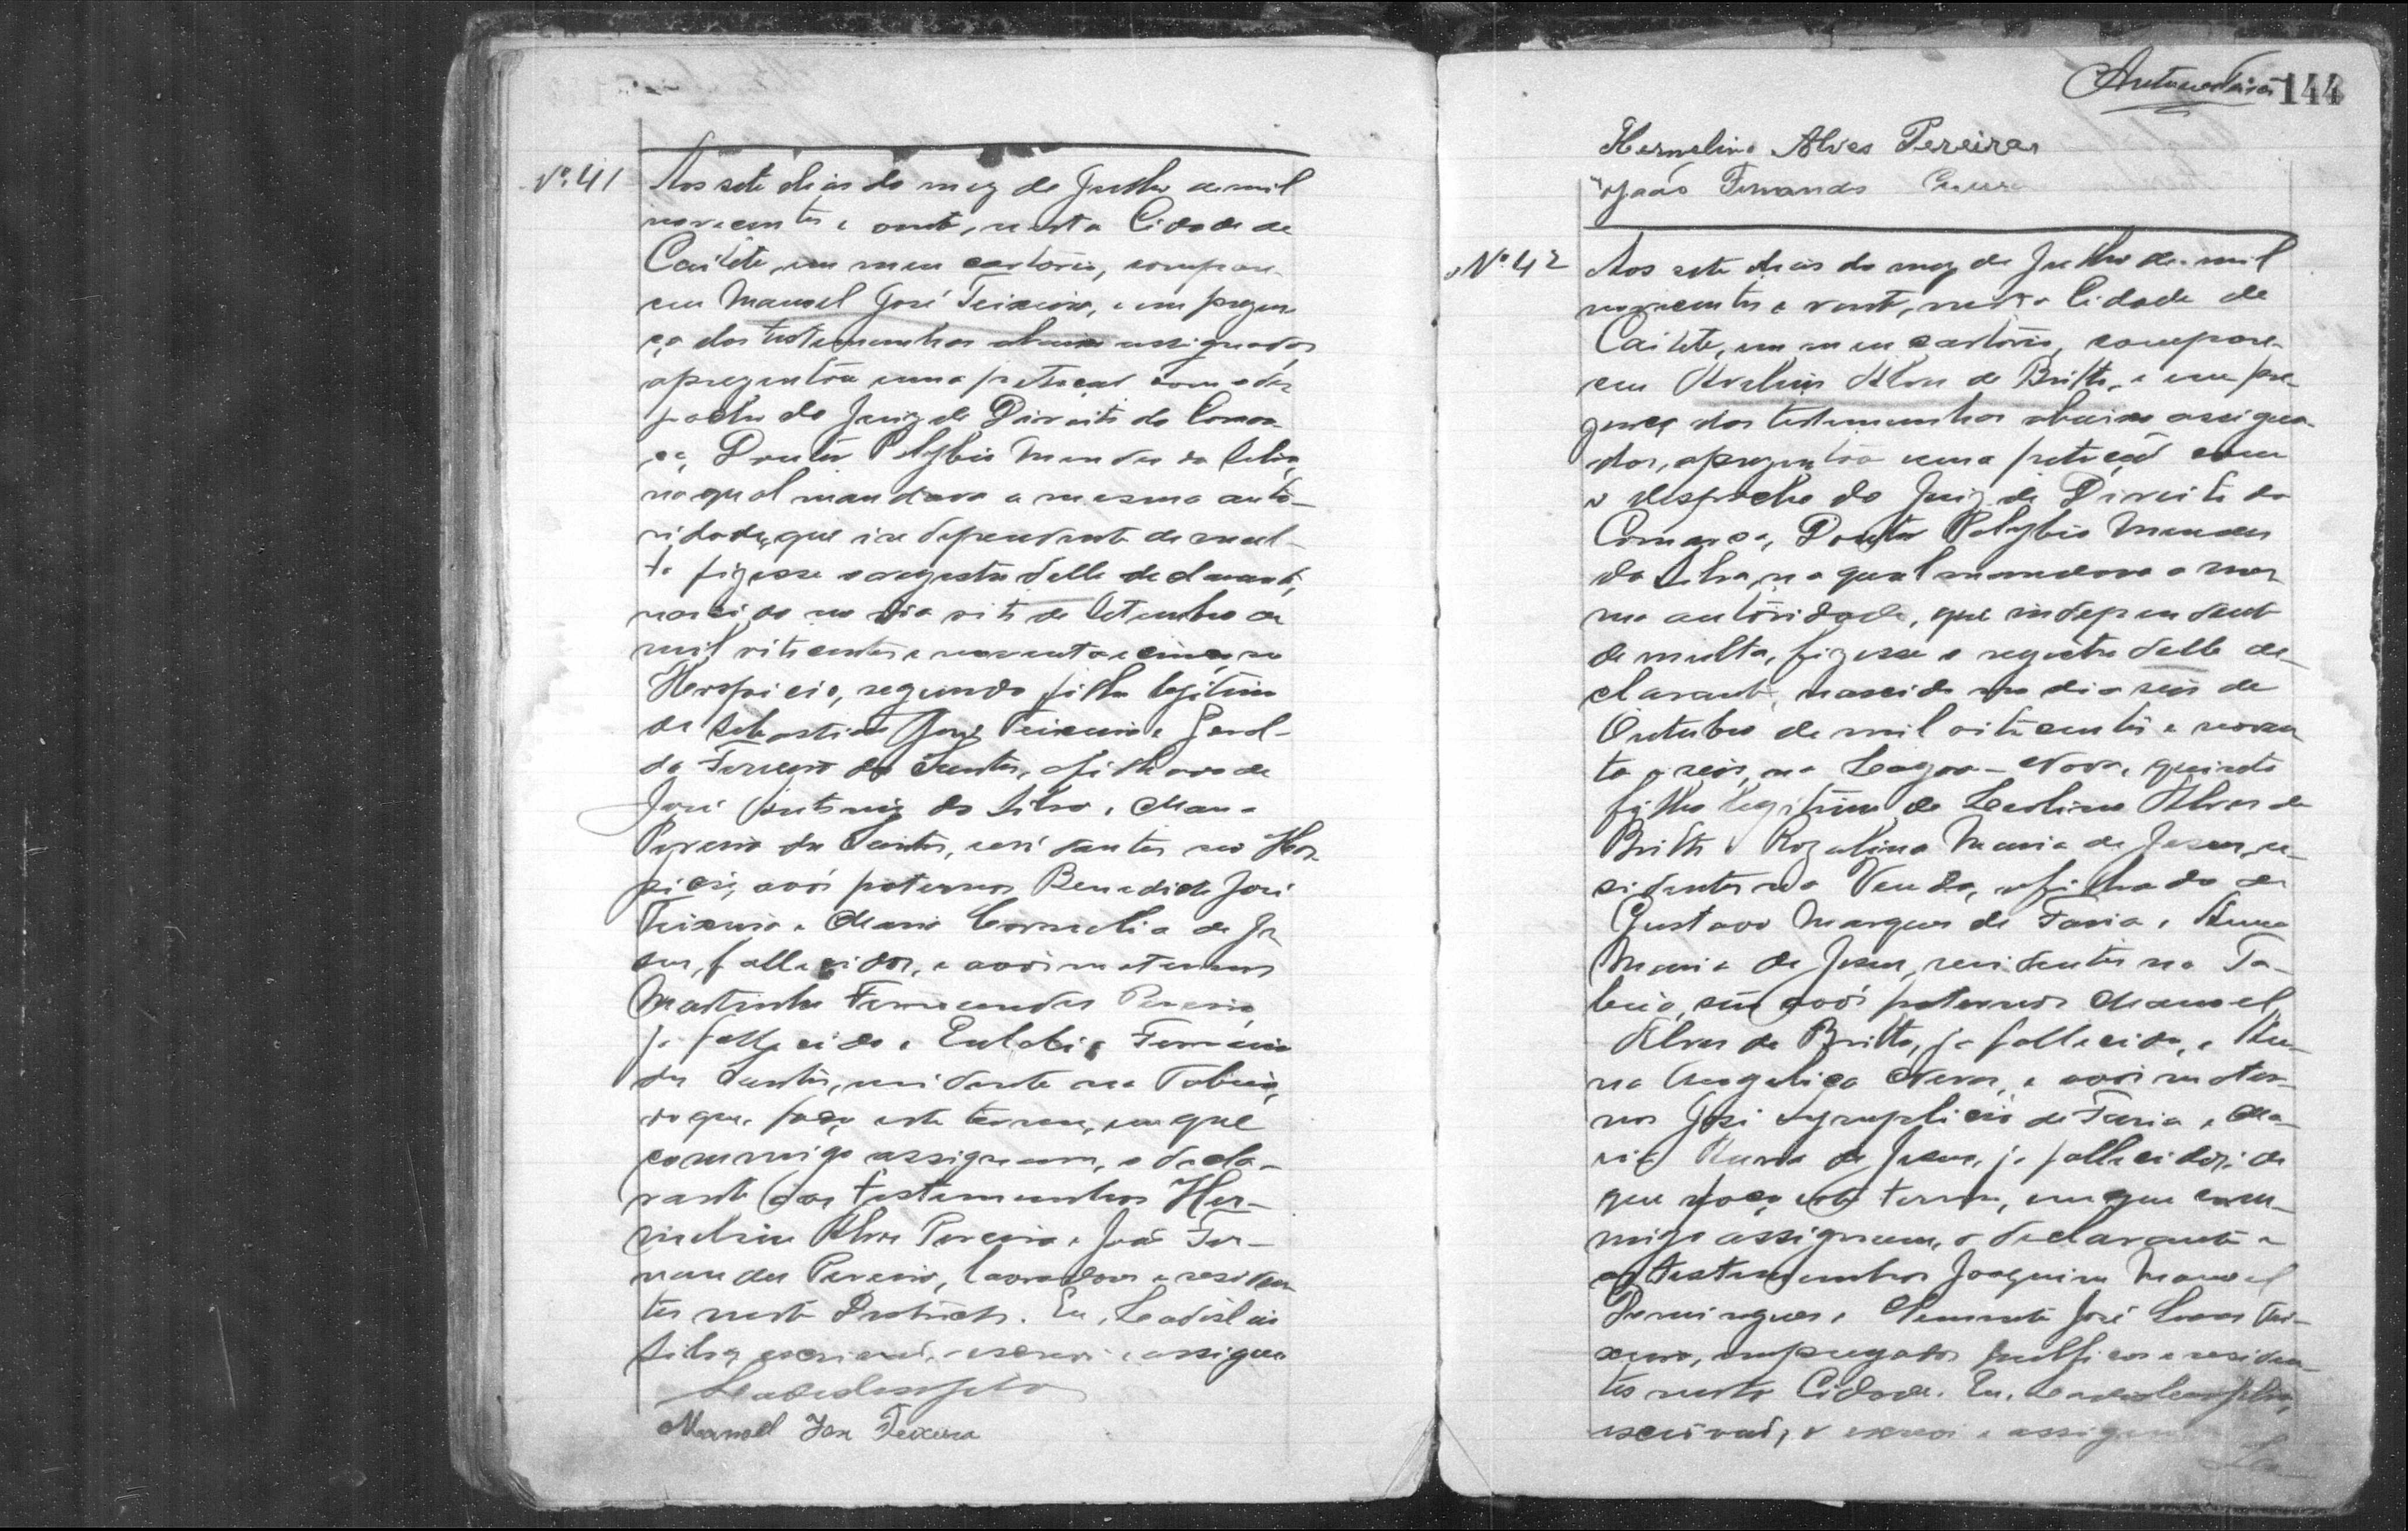 Nº 41
Aos sete dias do mez de Julho de mil
novecentos e vinte, nesta Cidade de
Caiteté, em meu cartorio, compare-
ceu Manoel José Teixeira, e em prezen
ça das testemunhas abaixo assignados,
aprezentou uma petição com o des
pacho do Juiz de Direito da Comar
ca, Doutor Polybio Mendes da Silva,
na qual mandava a mesma auto-
ridade, que independente de mul-
ta fizesse o registro delle declarante,
nascido no dia sete de Setembro de
mil oitocentos e noventa e cinco, no
Hospicio, segundo filho legitimo
de Sebastião José Teixeira e
da Ferreira dos Santos, afilhado de
José Antonio da Silva e Maria
Pereira dos Santos, residentes no Hos
picio, avós paternos Benedicto José
Teixeira e Maria Cornelia de Je
sus, fallecidos, e avós maternos
Martinho Fernandes Pereira,
já fallecido e Eulalia Ferreira
dos Santos, residente na
do que faço este termo, em que
commigo assignam, o decla-
rante e as testemunhas Her-
melino Alves Pereira e João Fer-
nandes Pereira, lavradores e residen
tes neste Districto. Eu, Leadislau
Silva, escrivão, o escrevi e assigno
Leadislau Silva
Manoel José Teixeira
144
Hermelino Alves Pereira
João Fernandes
Nº 42
Aos sete dias do mez de Julho de mil
novecentos e vinte, nesta Cidade de
Caiteté, em meu cartorio, compare-
ceu Avelino Alves de Britto, e em pre
zença das testemunhas abaixo assigna-
dos, aprezentou uma petição com
o despacho do Juiz de Direito da
Comarca, Doutor Polybio Mendes
da Silva, na qual mandava a mes
ma autoridade, que independente
de multa, fizesse o registro delle de-
clarante, nascido no dia seis de
Outubro de mil oitocentos e noven
ta e seis, na Lagoa-Nova, quinto
filho legitimo de Leolino Alves de
Britto e Rozalina Maria de Jesus, re-
sidentes na Venda, afilhado de
Gustavo Marques de Faria e Anna
Maria de Jesus, residentes na
seus avós paternos Manoel
Alves de Britto, já fallecido, e An-
na Angelica Neves, e avós mater-
nos José Symplicio de Faria e Ma-
ria Anna de Jesus, já fallecidos; do
que faço este termo, em que com-
migo assignam, o declarante e
as testemunhas Joaquim Manoel
Domingues e Clemente José Lucas Tei-
xeira, empregados publicos e residen-
tes nesta Cidade. Eu, Leadislau Silva,
escrivão, o escrevi e assigno